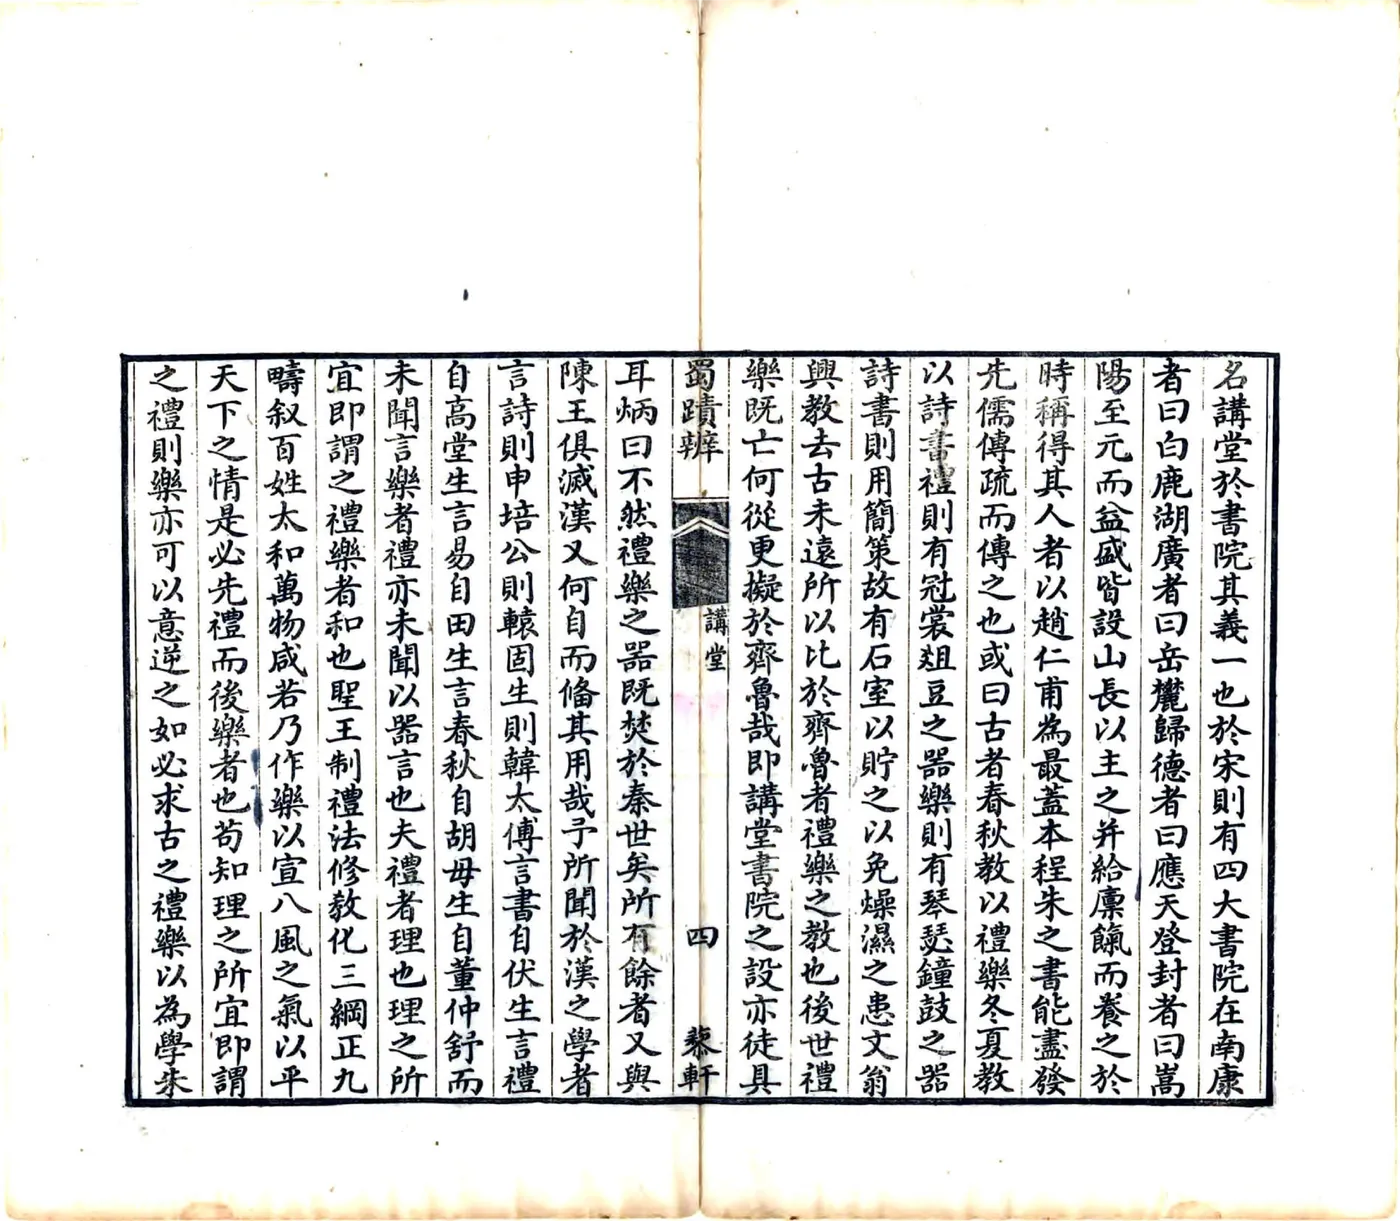 名講堂於書院其義一也於宋則有四大書院在南康
者曰白鹿湖廣者曰岳麓歸德者曰應天登封者曰嵩
陽至元而益盛皆設山長以主之并給廩餼而養之於
時稱得其人者以趙仁甫為最蓋本程朱之書能盡發
先儒傳疏而傳之也或曰古者春秋教以禮樂冬夏教
以詩書禮則有冠裳爼豆之器樂則有琴瑟鐘鼓之器
詩書則用簡策故有石室以貯之以免燥濕之患文翁
興教去古未遠所以比於齊魯者禮樂之教也後世禮
樂既亡何從更擬於齊魯哉即講堂書院之設亦徒具
蜀蹟辨
講堂
四
藜軒
耳炳曰不然禮樂之器既焚於秦世矣所有餘者又與
陳王俱滅漢又何自而脩其用哉予所聞於漢之學者
言詩則申培公則轅固生則韓太傅言書自伏生言禮
自高堂生言易自田生言春秋自胡毋生自董仲舒而
未聞言樂者禮亦未聞以器言也夫禮者理也理之所
宜即謂之禮樂者和也聖王制禮法修教化三綱正九
疇叙百姓太和萬物咸若乃作樂以宣八風之氣以平
天下之情是必先禮而後樂者也苟知理之所宜即謂
之禮則樂亦可以意逆之如必求古之禮樂以為學朱